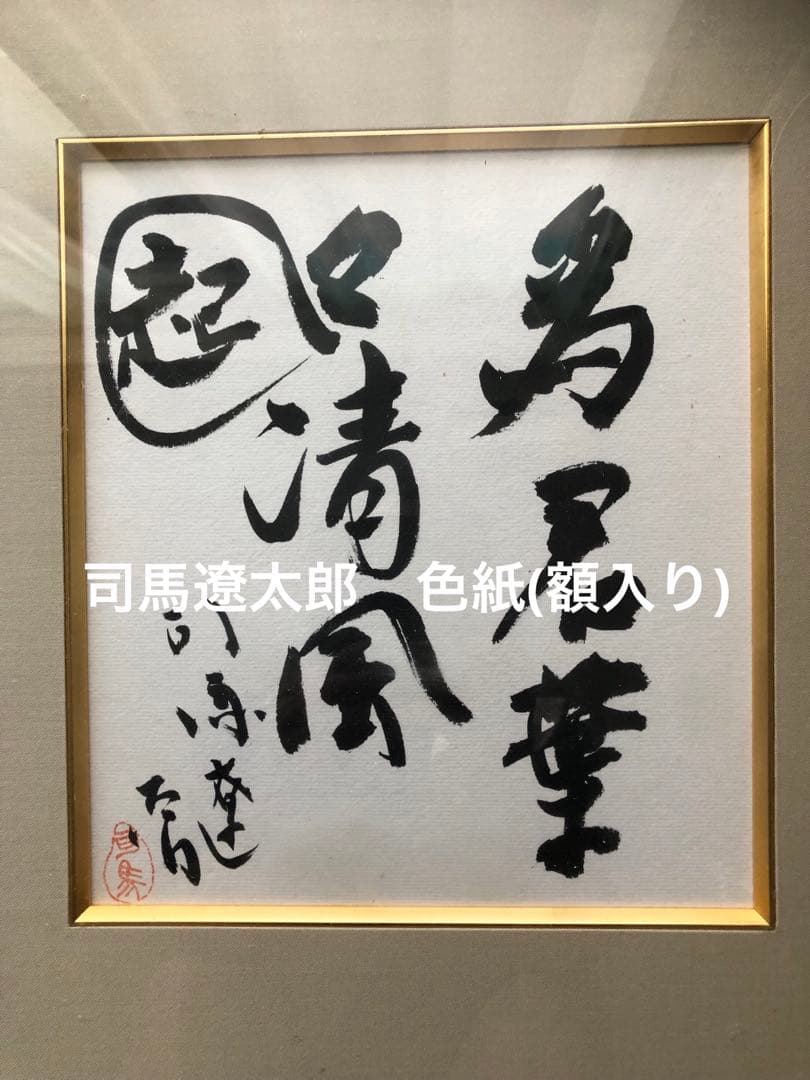 為君葉
々清風
起
司馬遼太郎
司馬
司馬遼太郎　色紙(額入り)